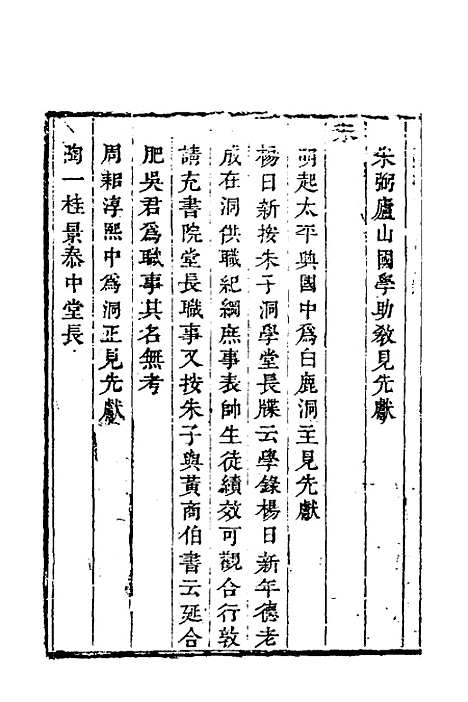 朱弼廬山國學助敎見先獻
宋
明起太平興國中爲白鹿洞主見先獻
楊日新按朱子洞學堂長牒云學錄楊日新年德老
成在洞供職紀綱庶事表帥生徒績效可觀合行敦
請充書院堂長職事又按朱子與黃商伯書云延合
肥吳君爲職事其名無考
周耜淳熙中爲洞正見先獻
陶一桂景泰中堂長